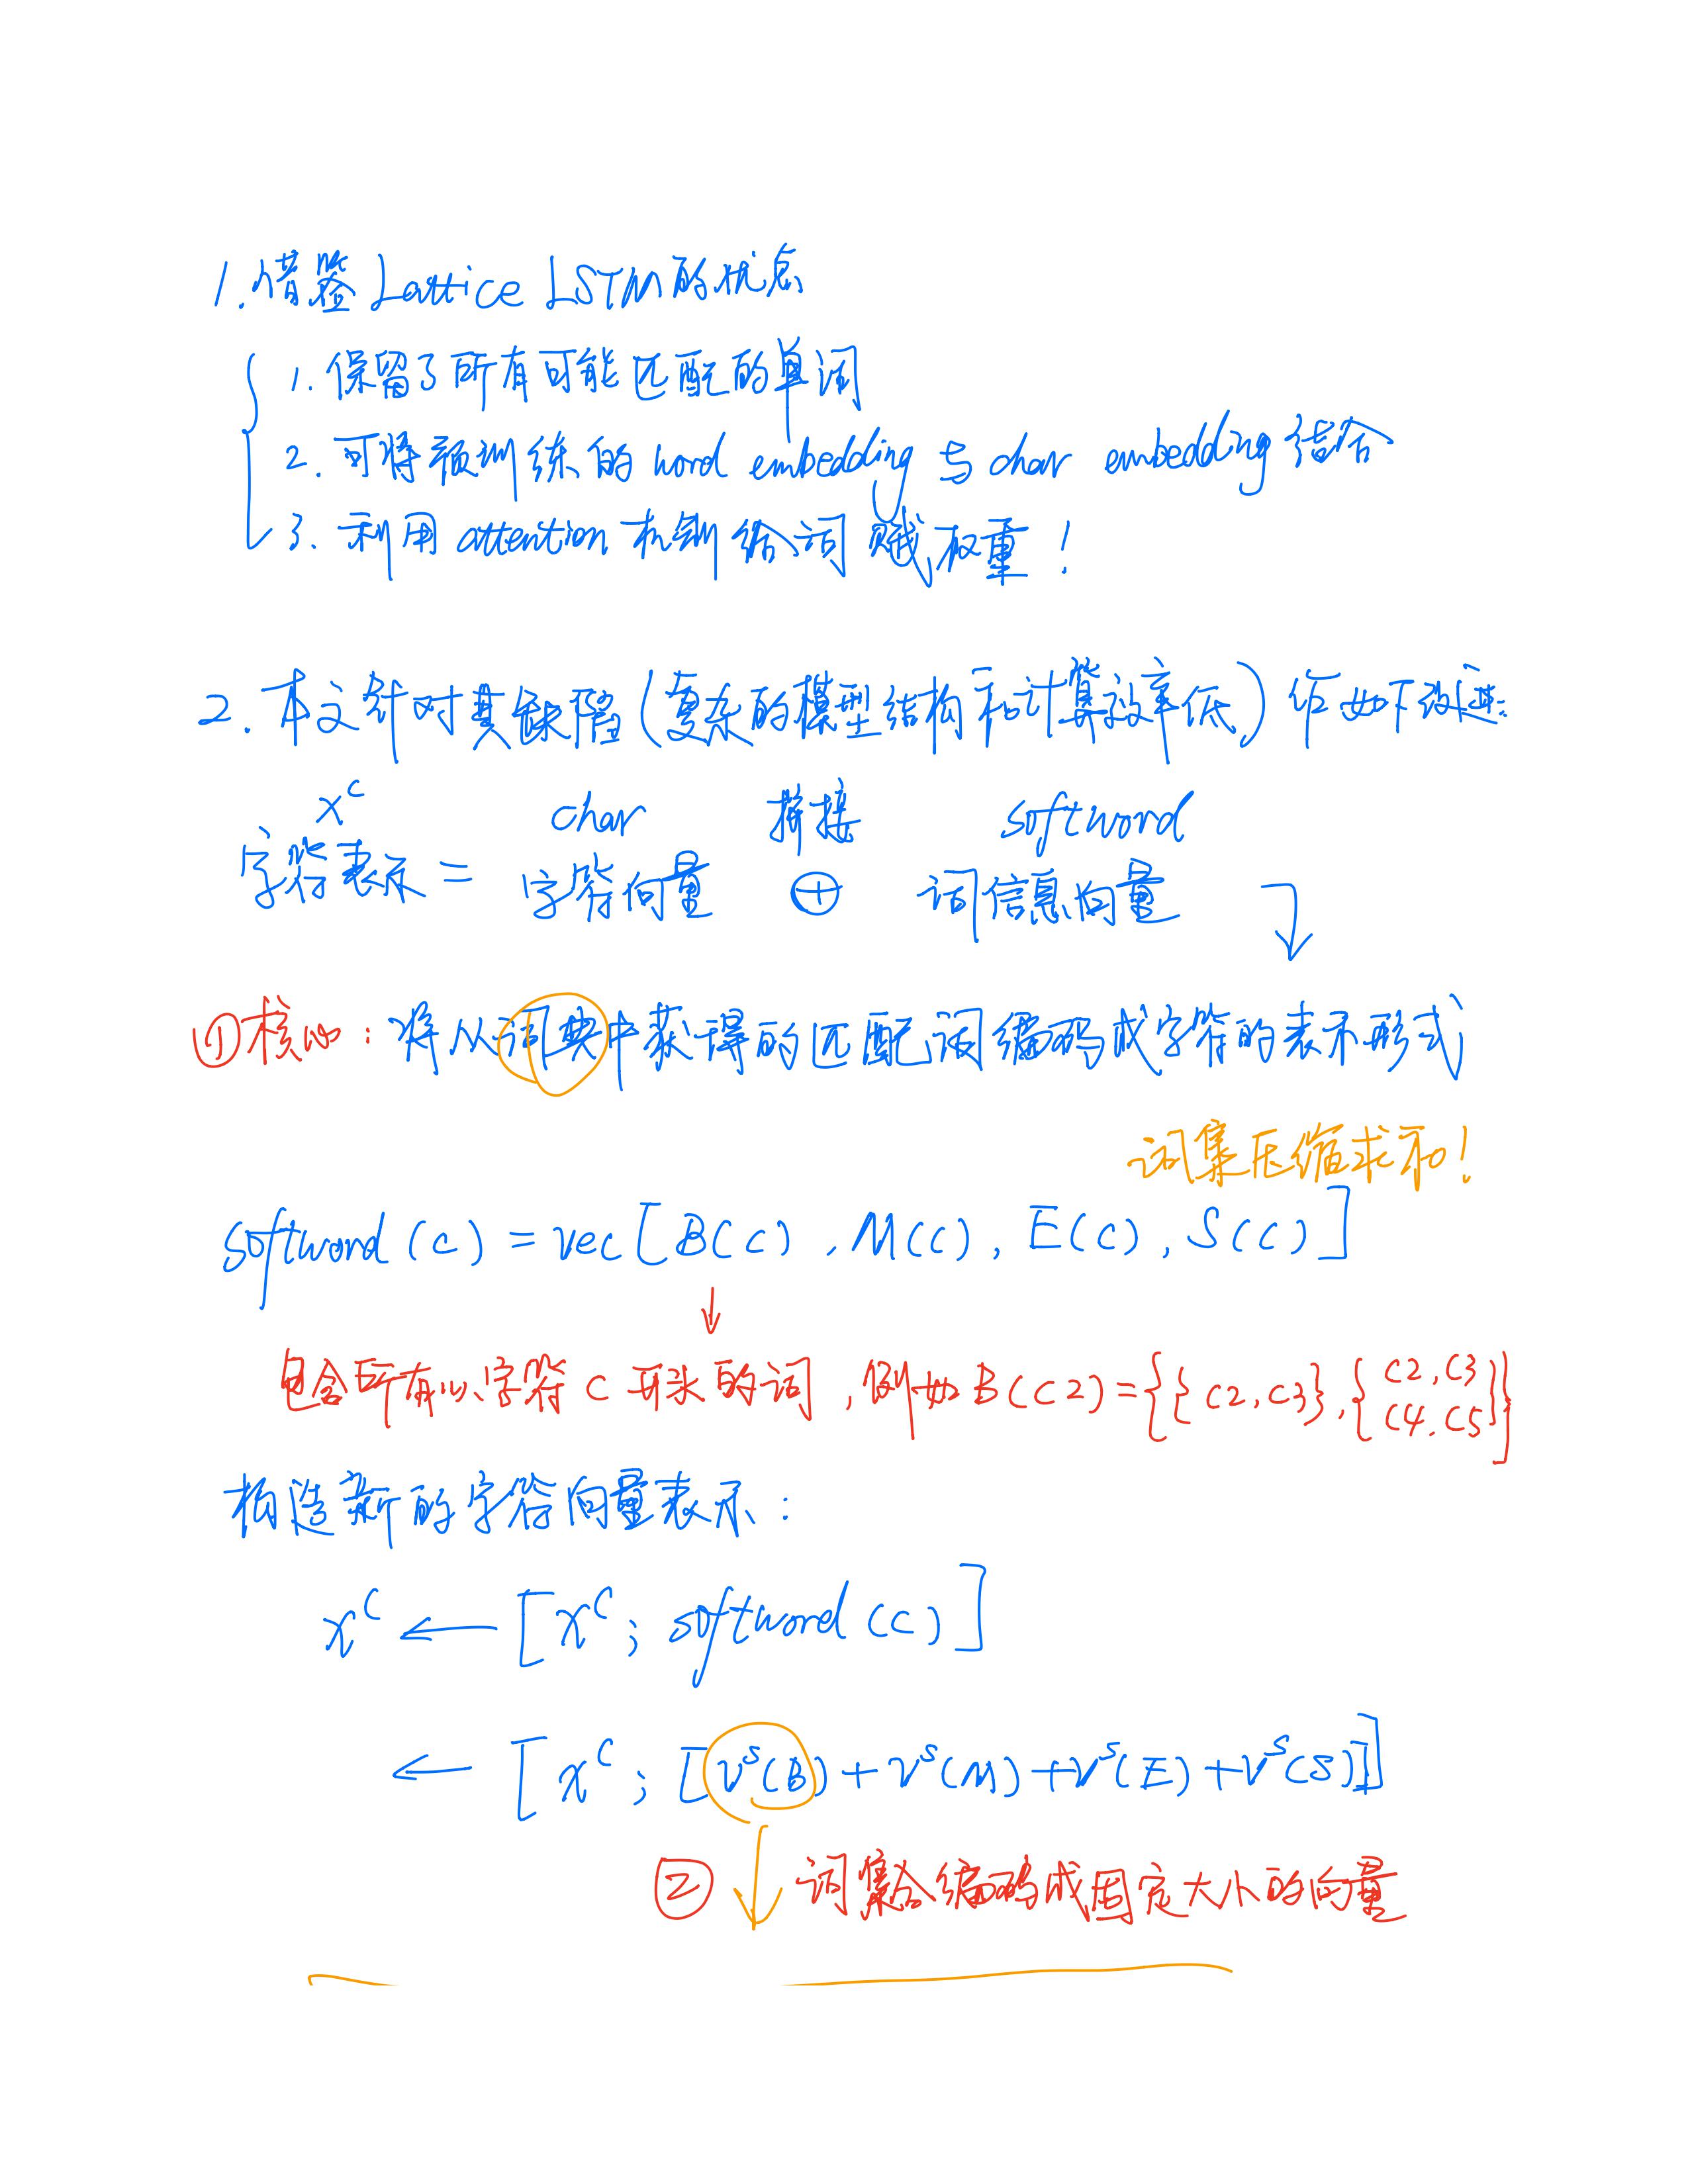 1.借鉴 Lattice LSTM的优点
1. 保留了所有可能匹配的单词
2. 可将预训练的 word embedding 与 char embedding 结合
3. 利用 attention 机制给词赋权重！
2. 本文针对其缺陷(复杂的模型结构和计算效率低)作如下改进:
x^c char 拼接 softword
字符表示 = 字符向量 ⊕ 词信息向量
①核心：将从词典中获得的匹配词编码成字符的表示形式
词集压缩求和！
softword (c) = vec [B(c), M(c), E(c), S(c)]
↓
包含所有以字符 c 开头的词, 例如 B(c2)={{c2,c3},{c2,c3 c4,c5}}
构造新的字符向量表示：
x^c ← [x^c; softword (c)]
← [x^c; [v^s(B)+v^s(M)+v^s(E)+v^s(S)]]
② ↓ 词集合编码成固定大小的向量